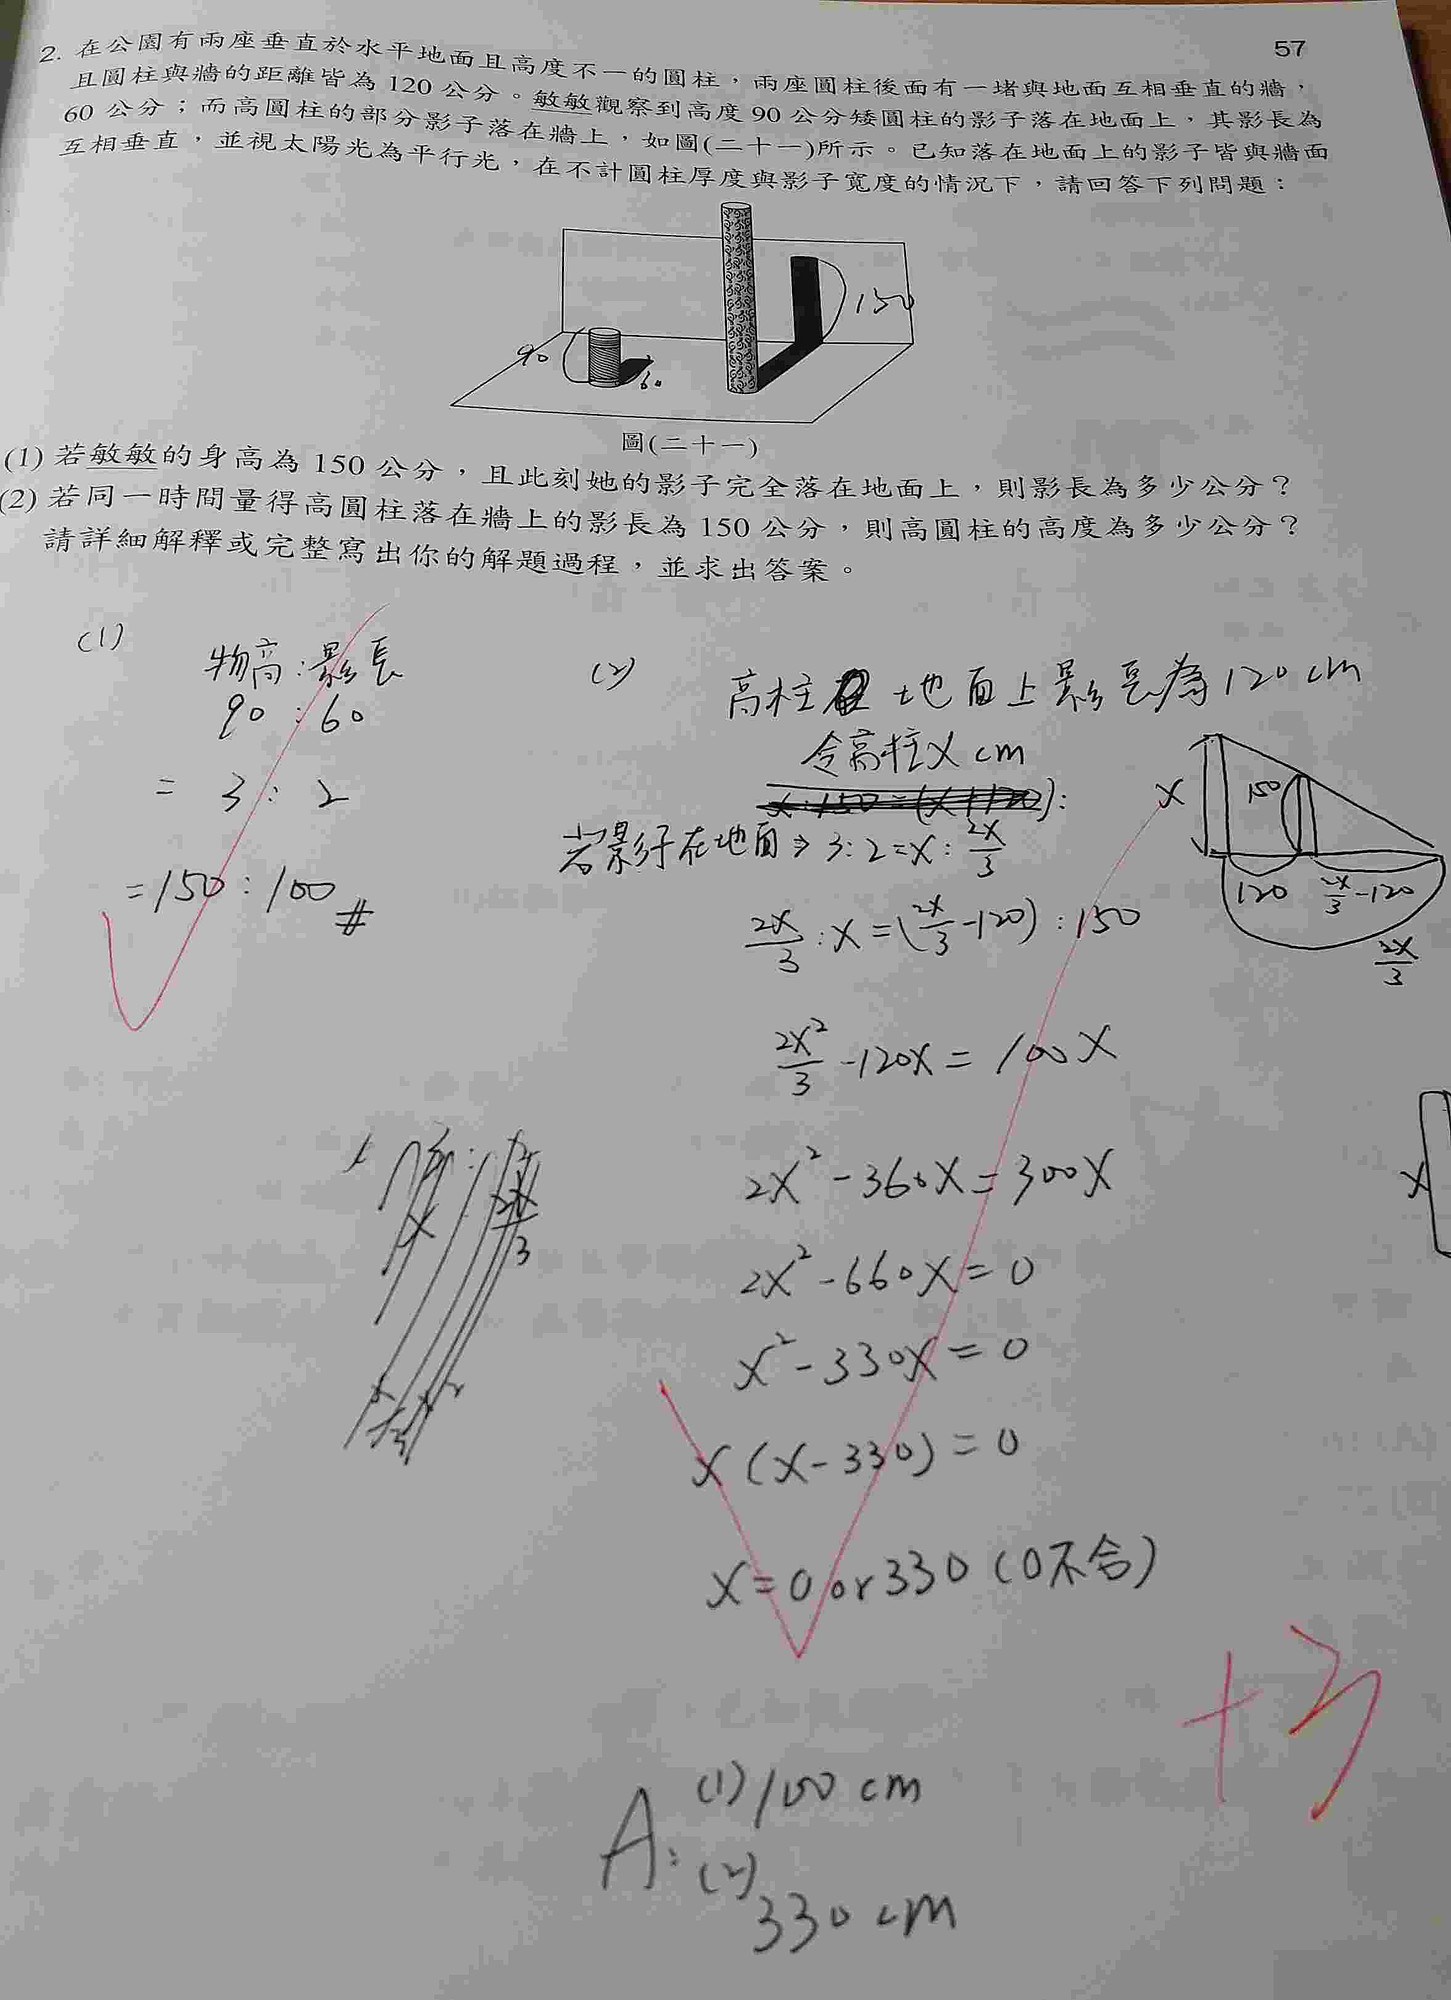 57
2. 在公園有兩座垂直於水平地面且高度不一的圓柱，兩座圓柱後面有一堵與地面互相垂直的牆，
且圓柱與牆的距離皆為 120 公分。敏敏觀察到高度 90 公分矮圓柱的影子落在地面上，其影長為
60 公分；而高圓柱的部分影子落在牆上，如圖(二十一)所示。已知落在地面上的影子皆與牆面
互相垂直，並視太陽光為平行光，在不計圓柱厚度與影子寬度的情況下，請回答下列問題：
90
60
150
圖(二十一)
(1) 若敏敏的身高為 150 公分，且此刻她的影子完全落在地面上，則影長為多少公分？
(2) 若同一時間量得高圓柱落在牆上的影長為 150 公分，則高圓柱的高度為多少公分？
請詳細解釋或完整寫出你的解題過程，並求出答案。
(1)
物高：影長
90 : 60
= 3 : 2
= 150 : 100 #
(2)
高柱 地面上影長為 120 cm
令高柱 X cm
若影子在地面 ⇒ 3:2 = X : 2X/3
2X/3 : X = (2X/3 - 120) : 150
2X²/3 - 120X = 100X
2X² - 360X = 300X
2X² - 660X = 0
X² - 330X = 0
X (X - 330) = 0
X = 0 or 330 (0不合)
X
150
120
2X/3 - 120
2X/3
X
+3
A: (1) 100 cm
(2) 330 cm